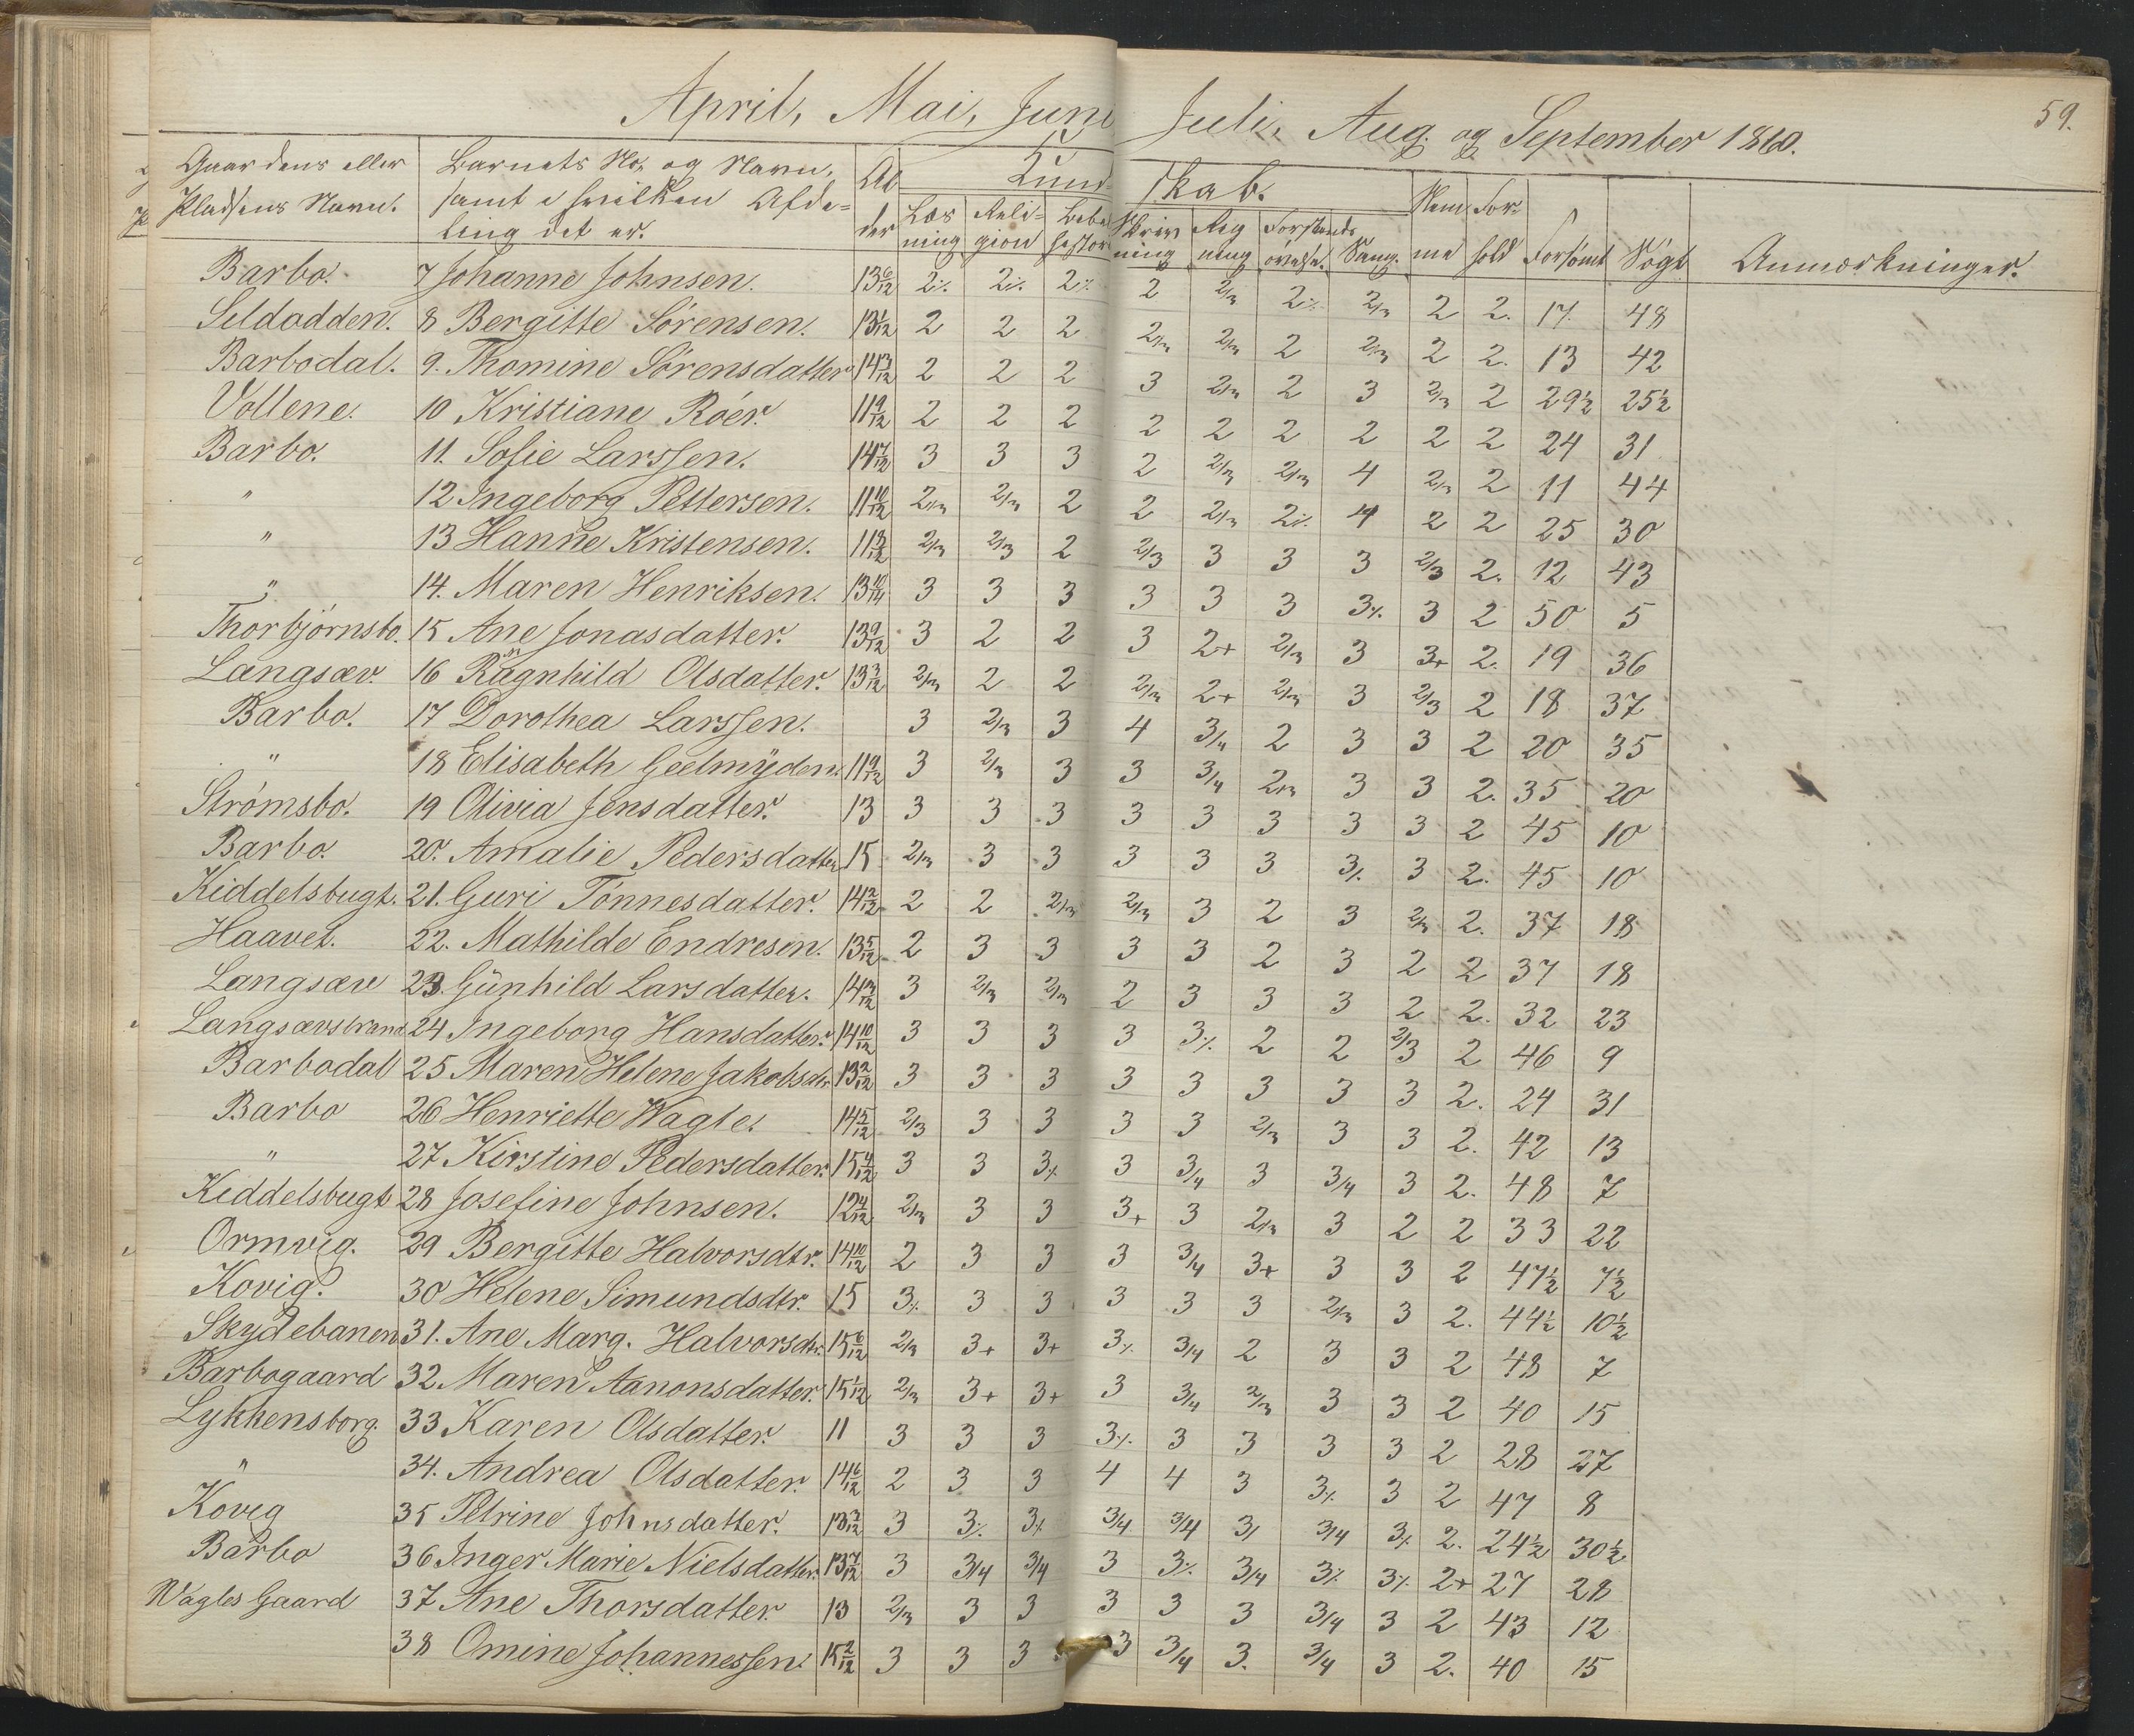 59.
April, Mai, Juni Juli, Aug. og September 1860.
Gaardens eller Pladsens Navn. | Barnets No. og Navn, samt i hvilken Afdeling det er. | Alder | Kundskab. | Nemme | Forhold | Forsømt | Søgt | Anmærkninger.
Læsning | Religion | Skrivning | Regning | Forstands øvelse. | Sang.
Barbo. 7 Johanne Johnsen. 13 6/12 2% 2% 2% 2 2/3 2% 2/3 2 2. 17. 48
Seldodden. 8 Bergitte Sörensen. 13 1/12 2 2 2 2/3 2/3 2 2/3 2 2. 13 42
Barbodal. 9. Thomine Sörensdatter 14 3/12 2 2 2 3 2/3 2 3 2/3 2 29½ 25½
Vollene. 10 Kristiane Röer. 11 9/12 2 2 2 2 2 2 2 2 2 24 31
Barbo. 11. Sofie Larssen. 14 7/12 3 3 3 2 2/3 2/3 4 2/3 2 11 44
" 12 Ingeborg Pettersen. 11 10/12 2/3 2/3 2 2 2/3 2% 4 2 2 25 30
" 13 Hanne Kristensen. 11 9/12 2/3 2/3 2 2/3 3 3 3 2/3 2. 12 43
" 14. Maren Henriksen. 13 3 3 3 3 3 3 3% 3 2 50 5
Thorbjörnsbo. 15 Ane Jonasdatter. 13 9/12 3 2 2 3 2+ 2/3 3 3+ 2. 19 36
Langsæv. 16 Ragnhild Olsdatter. 13 3/12 2/3 2 2 2/3 2+ 2/3 3 2/3 2 18 37
Barbo. 17 Dorothea Larssen. 3 2/3 3 4 3/4 2 3 3 2 20 35
" 18 Elisabeth Geelmÿden. 11 9/12 3 2/3 3 3 3/4 2/3 3 3 2. 35 20
Strömsbo. 19 Olivia Jensdatter. 13 3 3 3 3 3 3 3 3 2 45 10
Barbo. 20. Amalie Pedersdatter 15 2/3 3 3 3 3 3 3% 3 2. 45 10
Kiddelsbugt. 21. Guri Tönnesdatter. 14 2/12 2 2 2/3 2/3 3 2 3 2/3 2. 37 18
Haavet. 22. Mathilde Endresen. 13 5/12 2 3 3 3 3 2 3 2 2 37 18
Langsæv 23. Günhild Larsdatter. 14 3/12 3 2/3 2/3 2 3 3 3 2 2. 32 23
Langsævstrand 24 Ingeborg Hansdatter. 14 10/12 3 3 3 3 3% 2 2 2/3 2 46 9
Barbodal 25 Maren Helene Jakobsdtr 13 2/12 3 3 3 3 3 3 3 3 2. 24 31
Barbo 26 Henriette Wagle. 14 5/12 2/3 3 3 3 3 2/3 3 3 2. 42 13
" 27 Kirstine Pedersdatter. 15 4/12 3 3 3% 3 3/4 3 3/4 3 2. 48 7
Kiddelsbugt 28 Josefine Johnsen. 12 4/12 2/3 3 3 3+ 3 2/3 3 2 2 33 22
Ormvig. 29 Bergitte Halvorsdtr. 14 10/12 2 3 3 3 3/4 3+ 3 3 2 47½ 7½
Kovig. 30 Helene Simundsdtr. 15 3% 3 3 3 3 3 2/3 3 2. 44½ 10½
Skydebanen 31. Ane Marg. Halvorsdtr. 15 6/12 2/3 3+ 3+ 3% 3/4 2 3 3 2 48 7
Barbogaard 32. Maren Aanonsdatter. 15 1/12 2/3 3+ 3+ 3 3/4 2/3 3 3 2 40 15
Lykkensborg. 33 Karen Olsdatter. 11 3 3 3 3% 3 3 3 3 2 28 27
" 34. Andrea Olsdatter. 14 6/12 2 3 3 4 4 3 3% 3 2 47 8
Kovig 35 Petrine Johnsdatter. 3 3% 3% 3/4 3/4 3/ 3/4 3% 2. 24½ 30½
Barbo 36 Inger Marie Nielsdatter. 13 7/12 3 3/4 3/4 3 3% 3/4 3% 3% 2+ 27 28
Wagles Gaard 37 Ane Thorsdatter. 13 2/3 3 3 3 3 3 3/4 3 2 43 12
38 Omine Johannessen. 15 2/12 3 3 3 3 3/4 3. 3/4 3 2. 40 15